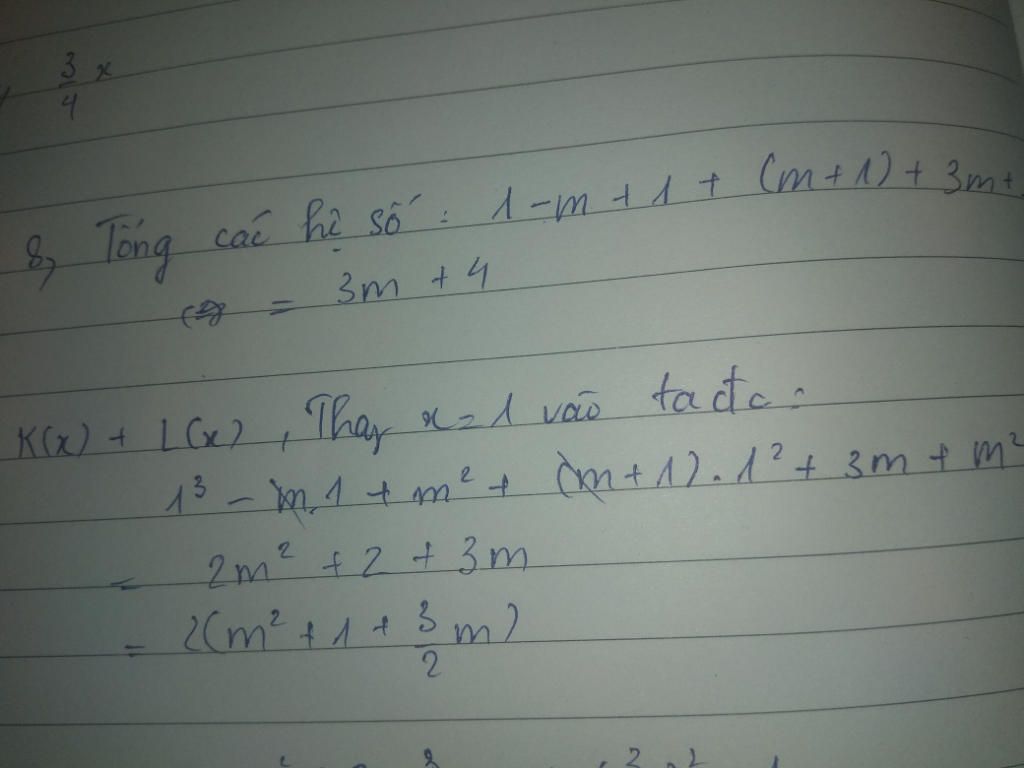 3/4 x
8, Tổng các hệ số : 1 - m + 1 + (m + 1) + 3m +
= 3m + 4
K(x) + L(x) , Thay x = 1 vào ta đc :
1³ - m.1 + m² + (m + 1) . 1² + 3m + m²
= 2m² + 2 + 3m
= 2(m² + 1 + 3/2 m)